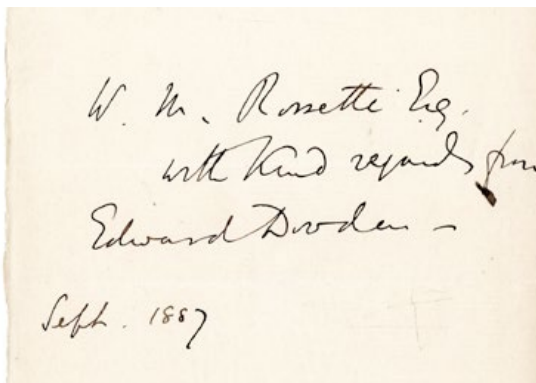 W. M. Rossetti Esq.
with kind regards from
Edward Dowden –
Sept. 1887